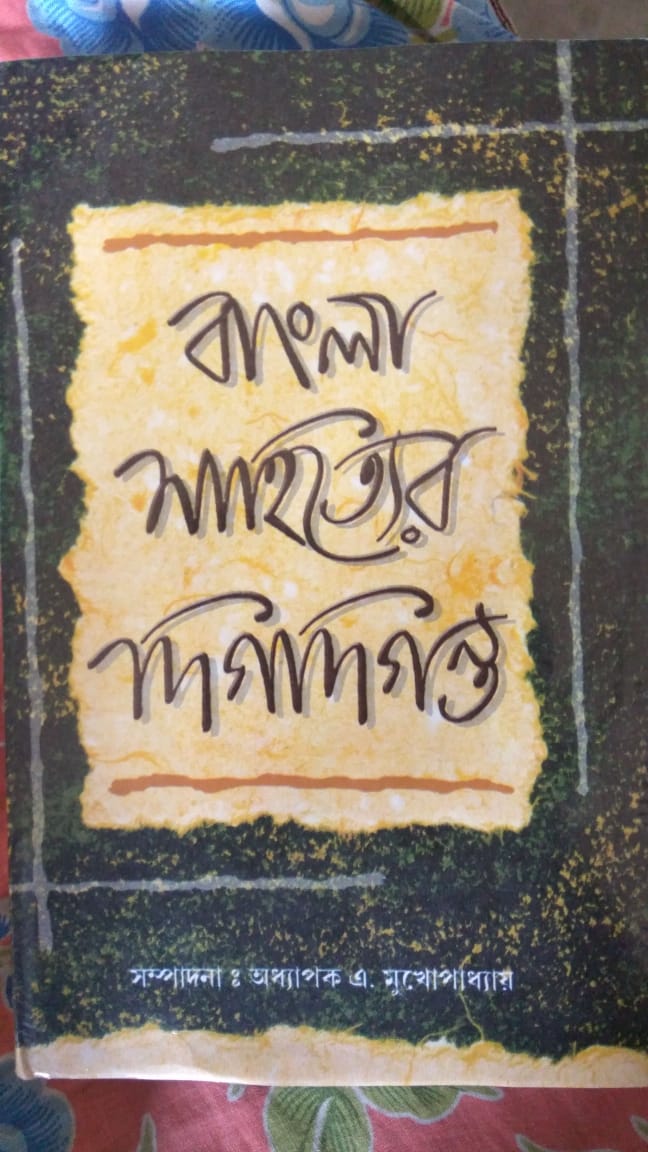 বাংলা
সাহিত্যের
দিগদিগন্ত
সম্পাদনা ঃ অধ্যাপক এ. মুখোপাধ্যায়